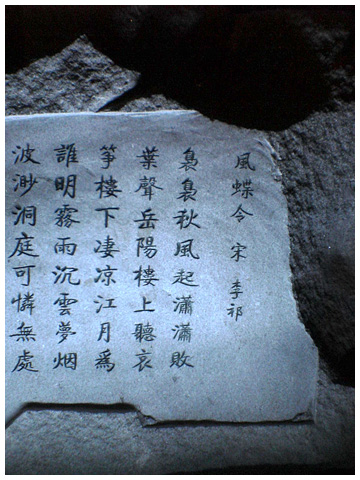 風蝶令 宋 李祁
裊裊秋風起瀟瀟敗
葉聲岳陽樓上聽哀
箏樓下凄凉江月爲
誰明霧雨沉雲夢烟
波渺洞庭可憐無處